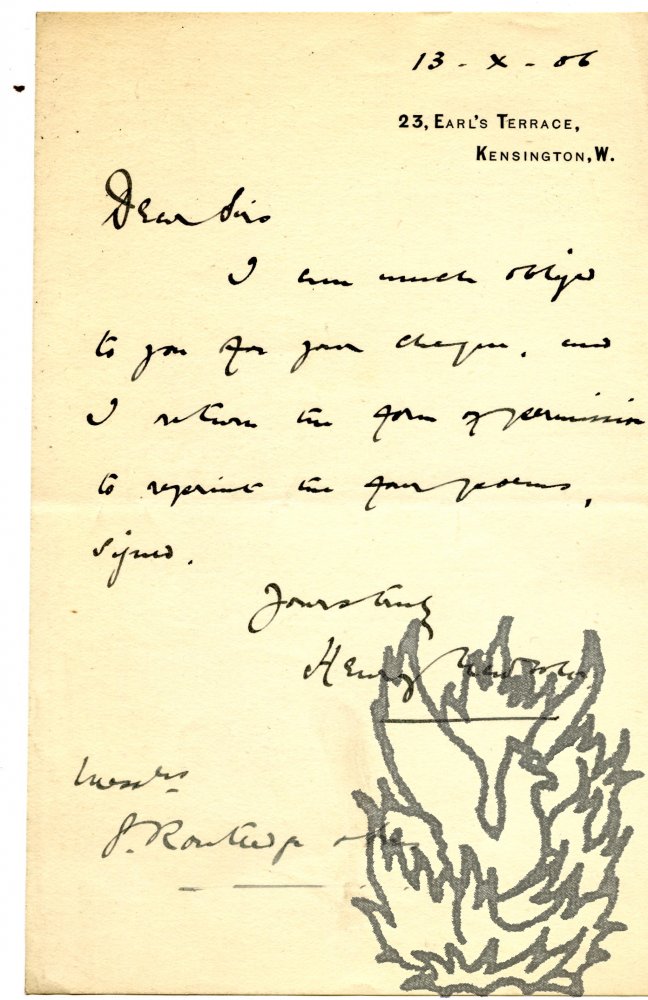 13 - X - 06
23, EARL'S TERRACE,
KENSINGTON, W.
Dear Sirs
I am much obliged
to you for your cheque, and
I return the form of permission
to reprint the four poems,
signed.
Yours truly
Henry Newbolt
Messrs
Routledge